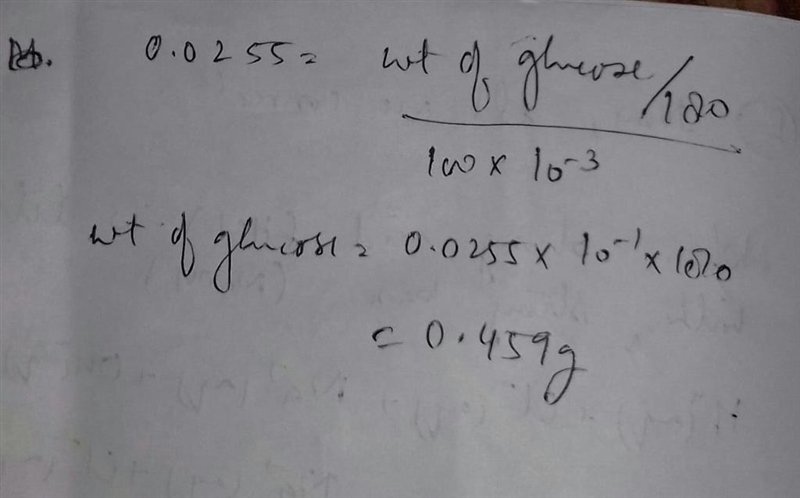 0.0255 = wt of glucose/180
100 × 10⁻³
wt of glucose = 0.0255 × 10⁻¹ × 180
= 0.459g